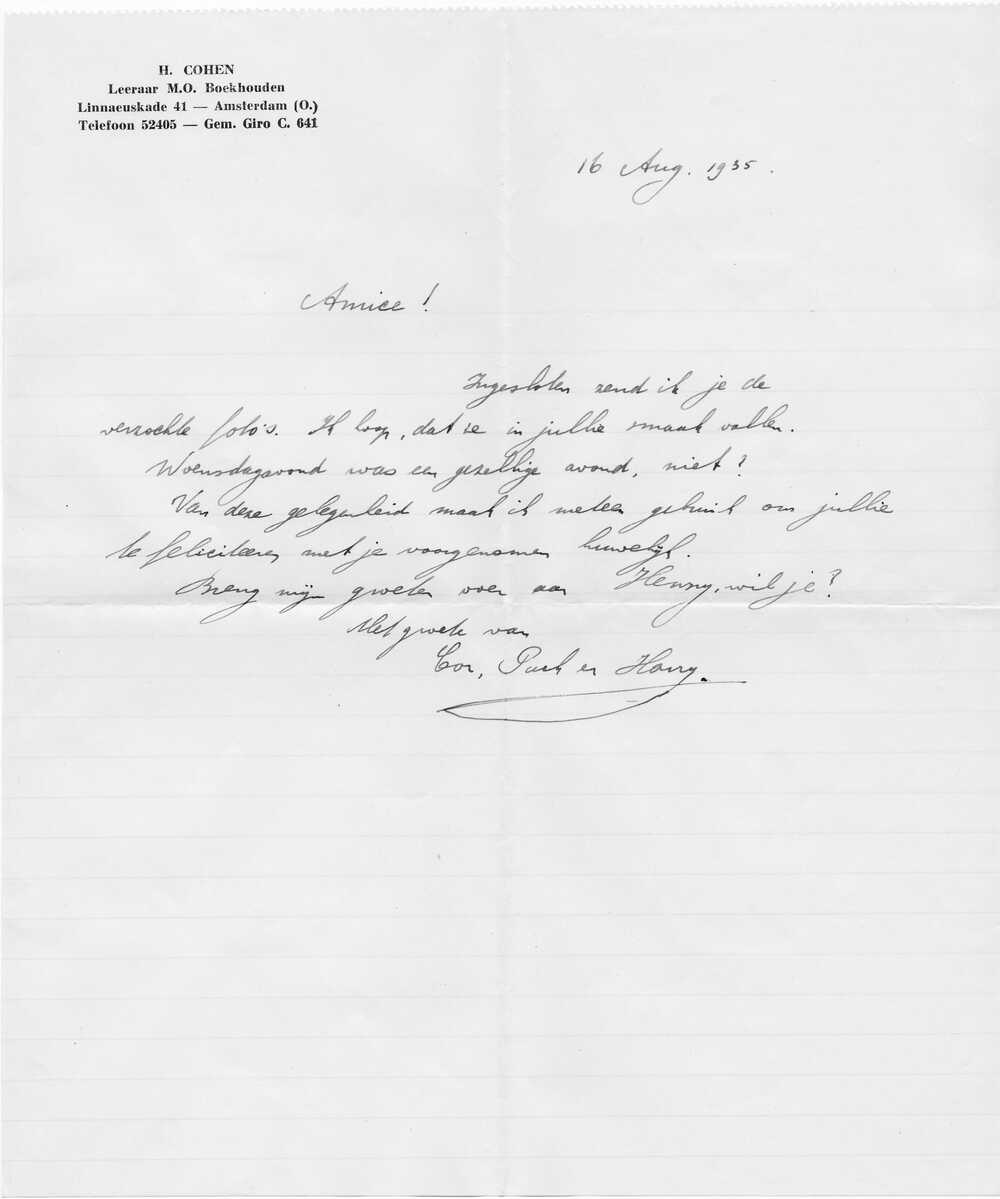 H. COHEN
Leeraar M.O. Boekhouden
Linnaeuskade 41 — Amsterdam (O.)
Telefoon 52405 — Gem. Giro C. 641
16 Aug. 1935.
Amice!
Ingesloten zend ik je de
verzochte foto's. Ik hoop, dat ze in jullie smaak vallen.
Woensdagavond was een gezellige avond, niet?
Van deze gelegenheid maak ik meteen gebruik om jullie
te feliciteeren met je voorgenomen huwelijk.
Breng mijn groeten over aan Henny, wil je?
Met groete van
Cor, Puck en Harry.